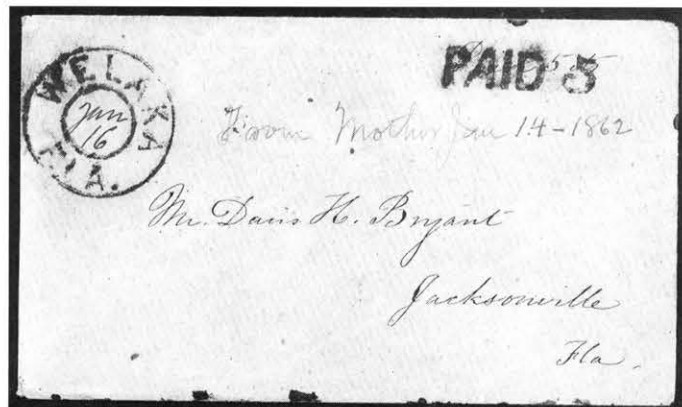 WELAKA
Jan
16
FLA.
PAID 5
From Mother Jan 14-1862
Mr. Davis H. Bryant
Jacksonville
Fla.